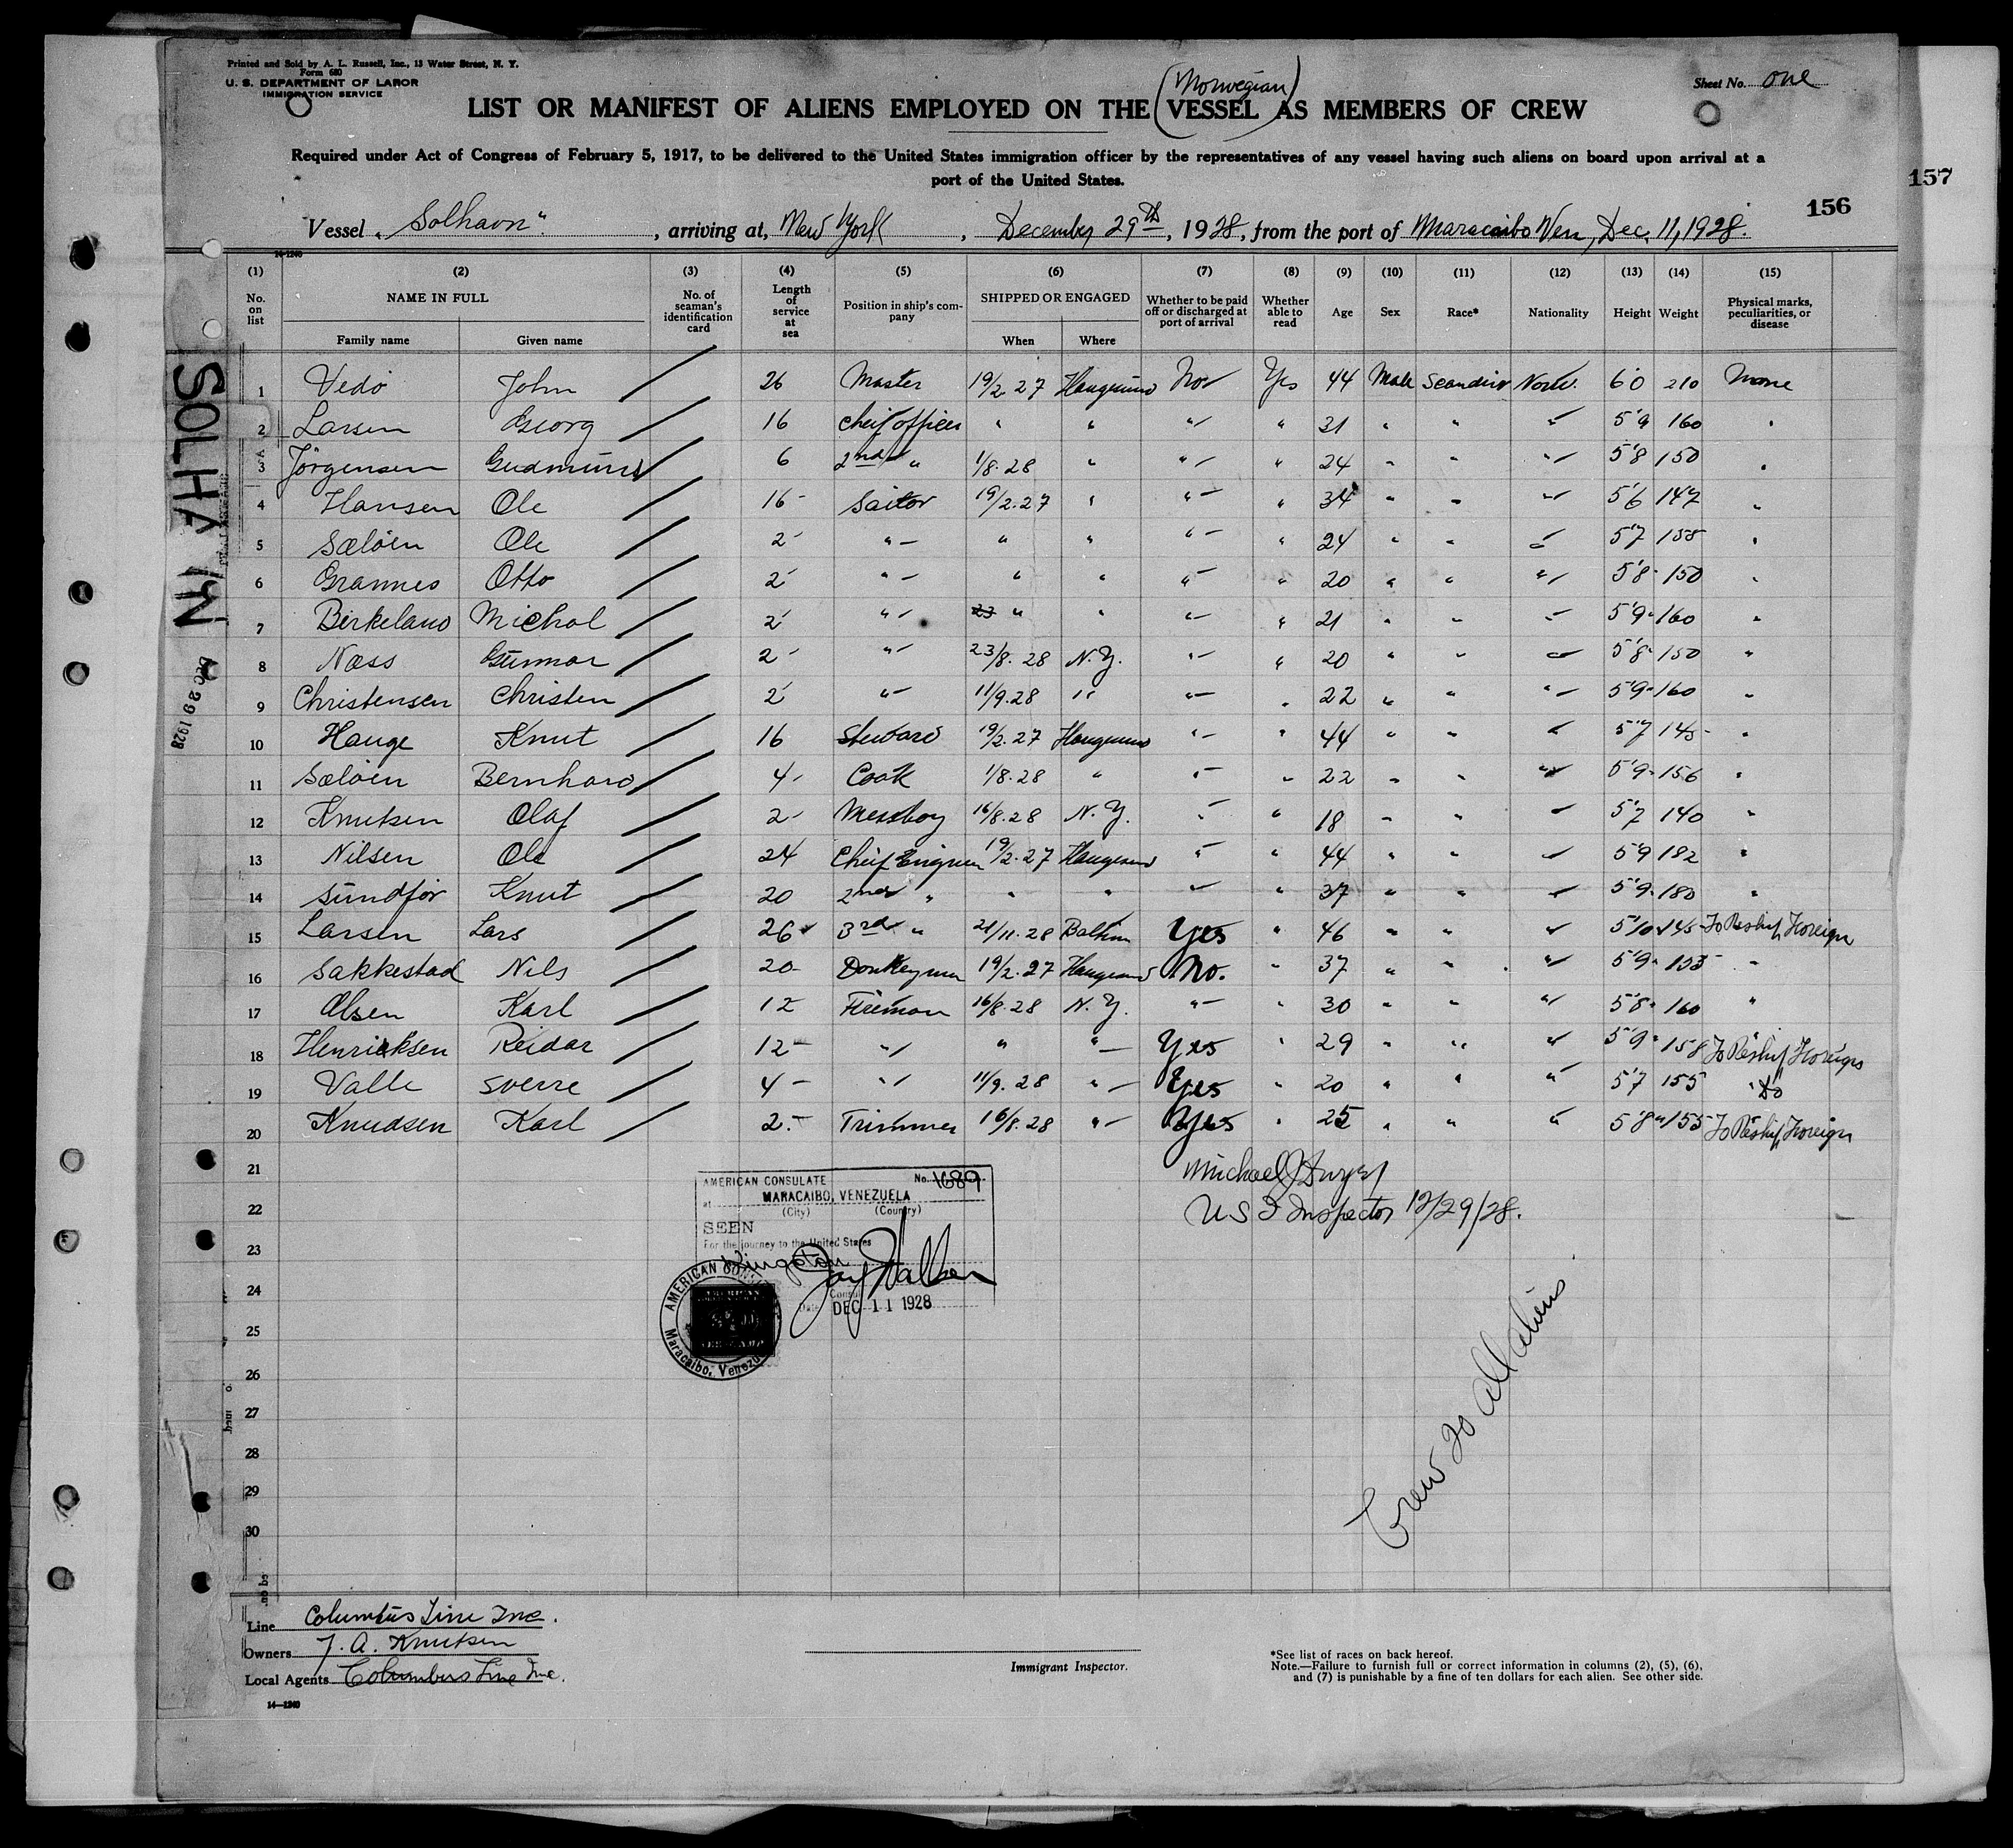 Printed and Sold by A. L. Russell, Inc., 13 Water Street, N. Y.
Form 680
U. S. DEPARTMENT OF LABOR
IMMIGRATION SERVICE
Sheet No. one
(Norwegian)
LIST OR MANIFEST OF ALIENS EMPLOYED ON THE VESSEL AS MEMBERS OF CREW
Required under Act of Congress of February 5, 1917, to be delivered to the United States immigration officer by the representatives of any vessel having such aliens on board upon arrival at a
port of the United States.
157
156
Vessel "Solhavn", arriving at, New York, December 29th, 1928, from the port of Maracaibo Ven, Dec. 11, 1928.
14-1240
(1) (2) (3) (4) (5) (6) (7) (8) (9) (10) (11) (12) (13) (14) (15)
No. on list NAME IN FULL No. of seaman's identification card Length of service at sea Position in ship's company SHIPPED OR ENGAGED Whether to be paid off or discharged at port of arrival Whether able to read Age Sex Race* Nationality Height Weight Physical marks, peculiarities, or disease
Family name Given name When Where
1 Vedö John 26 Master 19/2 27 Haugesund No Yes 44 Male Scandinv Norw. 6'0 210 None
2 Larsen Georg 16 Cheif officer " " " " 31 " " " 5'9 160 "
3 Jörgensen Gudmund 6 2nd " 1/8. 28 " " " 24 " " " 5'8 150 "
4 Hansen Ole 16 Sailor 19/2. 27 " " " 34 " " " 5'6 147 "
5 Sæløen Ole 2 " " " " " 24 " " " 5'7 158 "
6 Grannes Otto 2 " " " " " 20 " " " 5'8 150 "
7 Birkeland Michal 2 " 23 " " " " 21 " " " 5'9 160 "
8 Næss Gunnar 2 " 23/8. 28 N.Y. " " 20 " " " 5'8 150 "
9 Christensen Christen 2 " 11/9. 28 " " " 22 " " " 5'9 160 "
10 Hauge Knut 16 Steward 19/2. 27 Haugesund " " 44 " " " 5'7 145 "
11 Sæløen Bernhard 4 Cook 1/8. 28 " " " 22 " " " 5'9 156 "
12 Knutsen Olaf 2 Messboy 16/8. 28 N.Y. " " 18 " " " 5'7 140 "
13 Nilsen Ole 24 Cheif Engineer 19/2. 27 Haugesund " " 44 " " " 5'9 182 "
14 Sundför Knut 20 2nd " " " " " 37 " " " 5'9 180 "
15 Larsen Lars 26 3rd " 21/11. 28 Baltim Yes " 46 " " " 5'10 145 To Reship Foreign
16 Sakkestad Nils 20 Donkeyman 19/2. 27 Haugesund No. " 37 " " " 5'9 155 "
17 Olsen Karl 12 Fireman 16/8. 28 N.Y. " " 30 " " " 5'8 160 "
18 Henricksen Reidar 12 " " " Yes " 29 " " " 5'9 158 To Reship Foreign
19 Valle Sverre 4 " 11/9. 28 " Yes " 20 " " " 5'7 155 "do"
20 Knudsen Karl 2 Trimmer 16/8. 28 " Yes " 25 " " " 5'8 155 To Reship Foreign
21
22
23
24
25
26
27
28
29
30
Michael J Dwyer
U S I Inspector 12/29/28.
AMERICAN CONSULATE No. 1689
at MARACAIBO, VENEZUELA
(City) (Country)
SEEN
For the journey to the United States
Kingston
Jay Walker
Consul
Date DEC 11 1928
AMERICAN CONSULATE
Maracaibo, Venezuela
Crew 20 all aliens
SOLHAVN
DEC 29 1928
Line Columbus Line Inc.
Owners J. A. Knutsen
Local Agents Columbus Line Inc.
14—1240
Immigrant Inspector.
*See list of races on back hereof.
Note.—Failure to furnish full or correct information in columns (2), (5), (6),
and (7) is punishable by a fine of ten dollars for each alien. See other side.